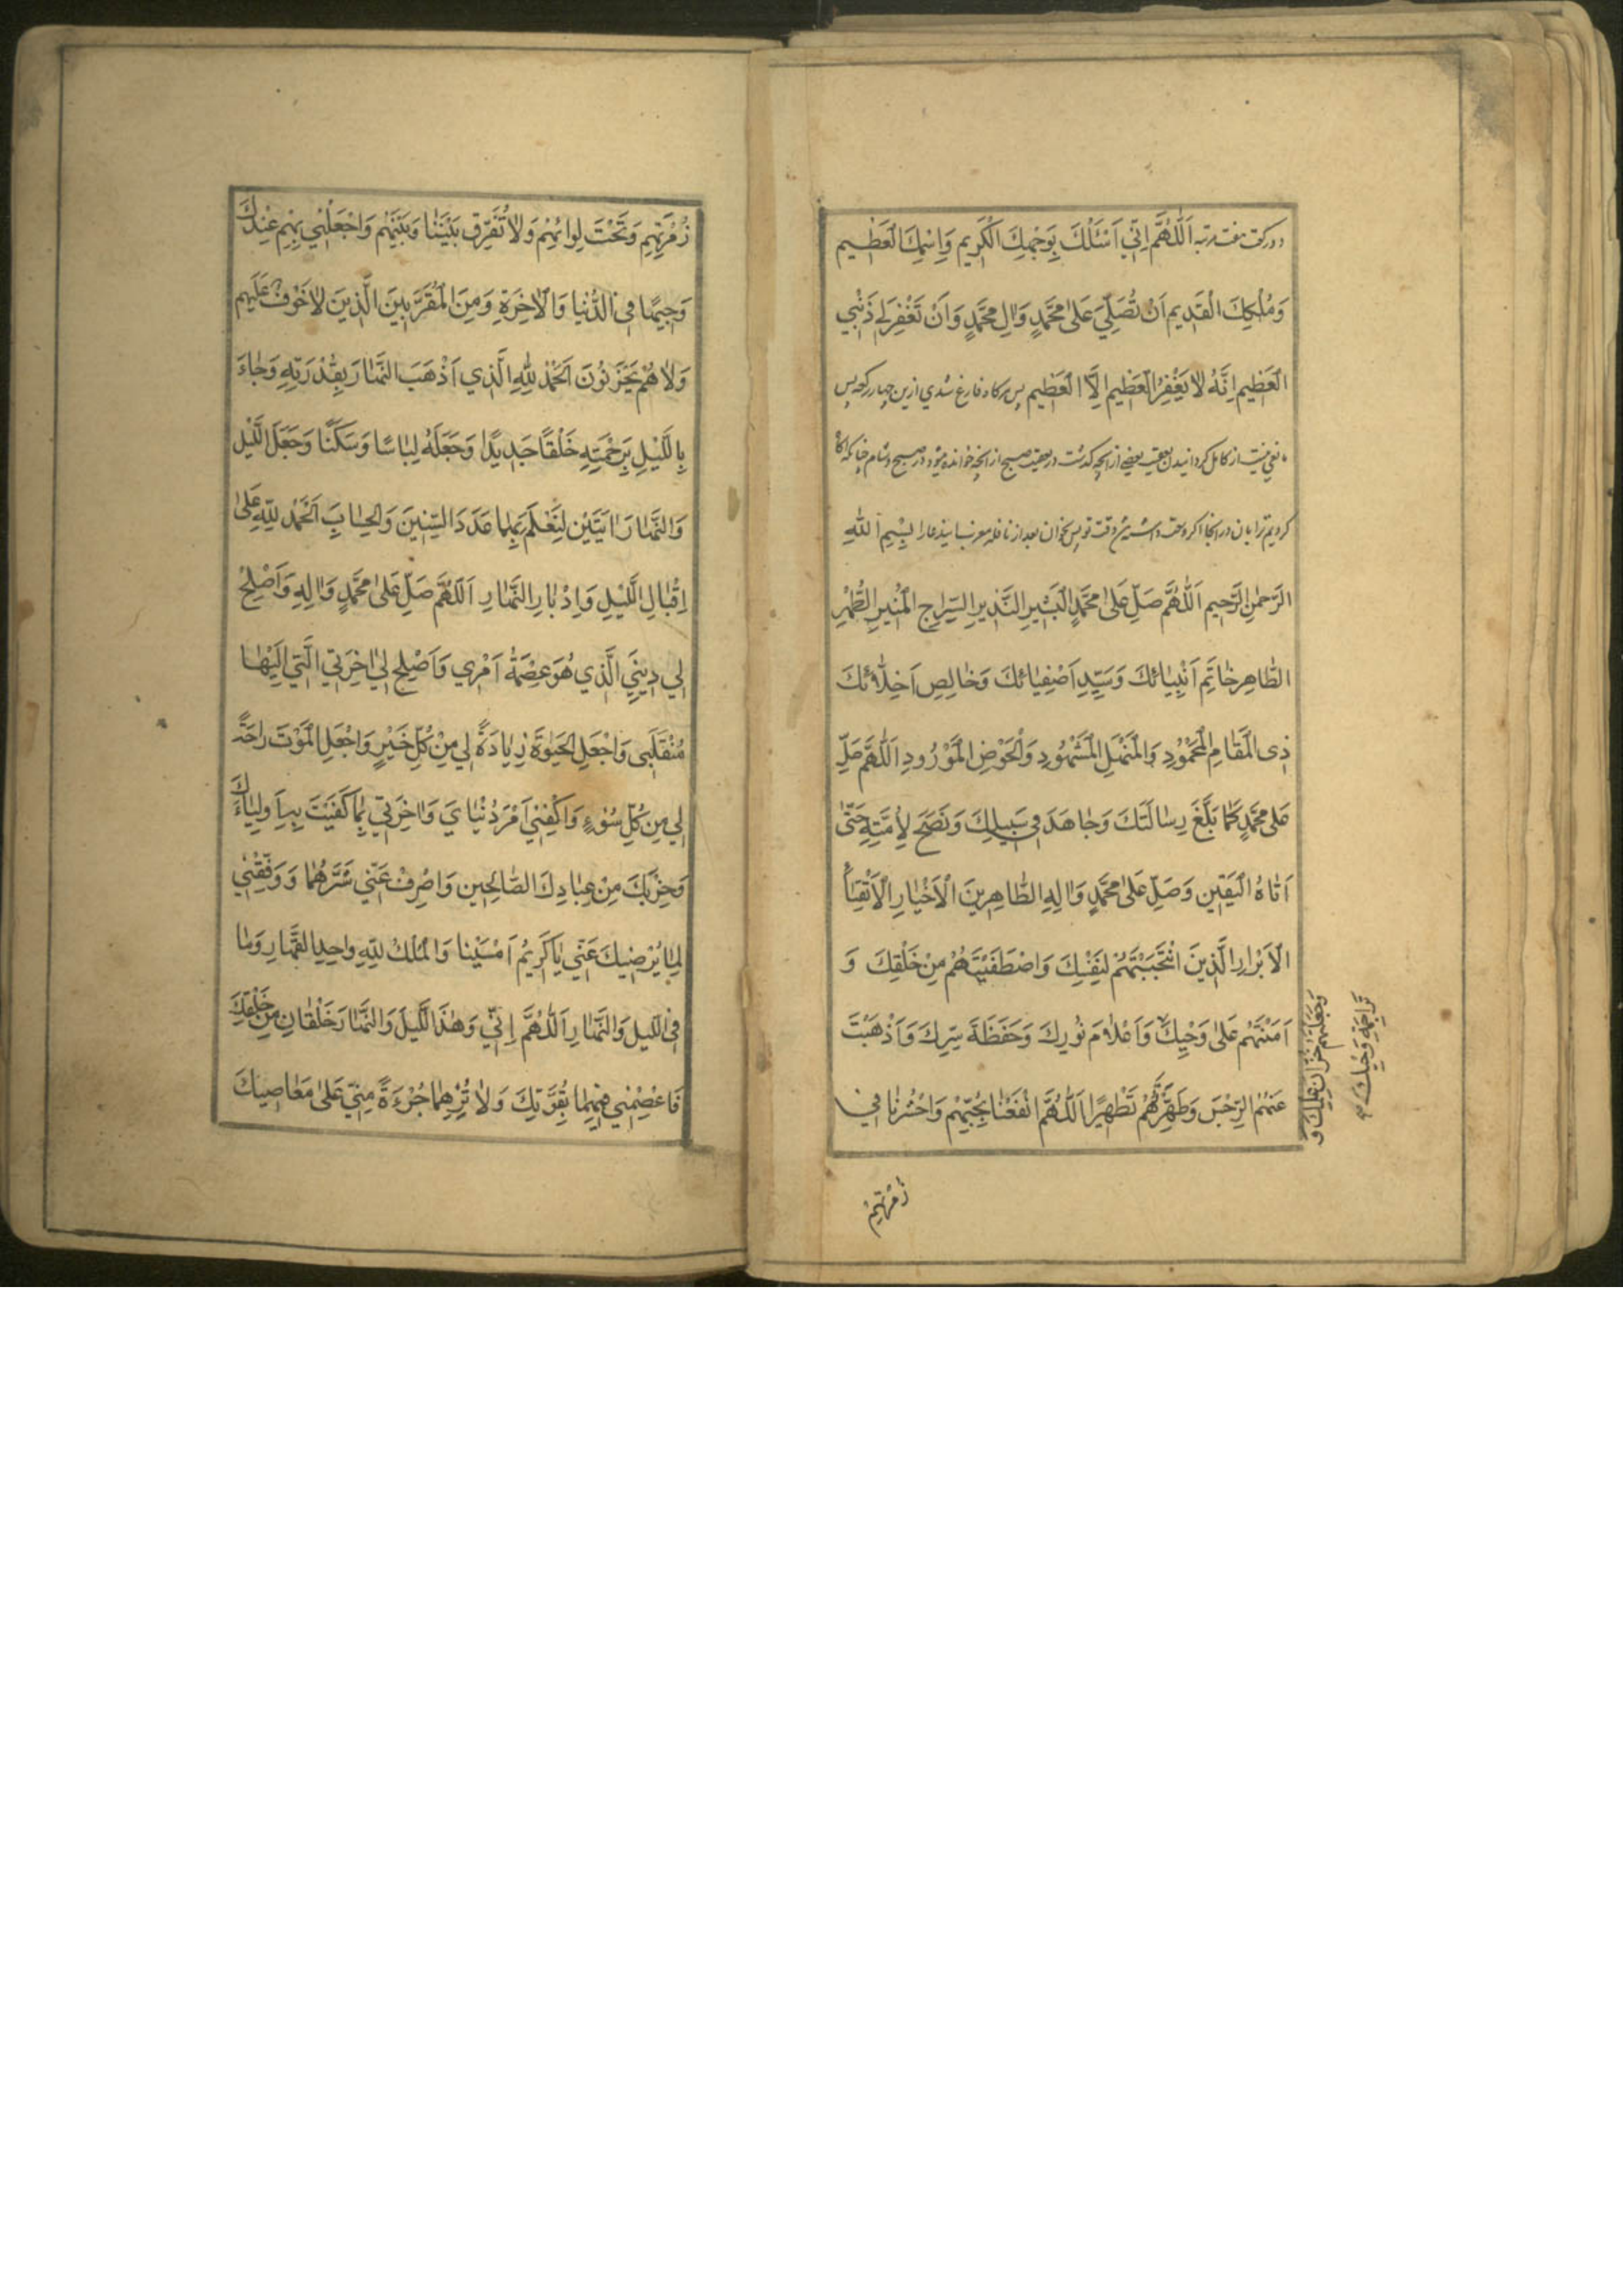 دو رکعت هفت مرتبه اَللّٰهُمَّ اِنّي اَسْئَلُكَ بِوَجْهِكَ الْكَرِيمِ وَاِسْمِكَ الْعَظِيمِ
وَمُلْكِكَ الْقَدِيمِ اَنْ تُصَلِّيَ عَلٰى مُحَمَّدٍ وَاٰلِ مُحَمَّدٍ وَاَنْ تَغْفِرَ لِي ذَنْبِي
الْعَظِيمَ اِنَّهُ لاٰ يَغْفِرُ الْعَظِيمَ اِلَّا الْعَظِيمِ پس هرکاه فارغ شدي ازين چهار رکعه پس
مانعي نيست از کامل کردانيدن تعقيب بعضي از انچه کذشت در تعقيب صبح از انچه خوانده ميشود در صبح و شام چنانکه اکاه
کرديم ترا بان در انجا اکر وقت پس بخوان بعد از نافله مغرب اين دعا را بِسْمِ اللّٰهِ
الرَّحْمٰنِ الرَّحِيمِ اَللّٰهُمَّ صَلِّ عَلٰى مُحَمَّدٍ الْبَشِيرِ النَّذِيرِ السِّرٰاجِ الْمُنِيرِ الطُّهْرِ
الطّٰاهِرِ خٰاتَمِ اَنْبِيٰائِكَ وَسَيِّدِ اَصْفِيٰائِكَ وَخٰالِصِ اَخِلّٰائِكَ
ذِى الْمَقٰامِ الْمَحْمُودِ وَالْمَنْهَلِ الْمَشْهُودِ وَالْحَوْضِ الْمَوْرُودِ اَللّٰهُمَّ صَلِّ
عَلٰى مُحَمَّدٍ كَمٰا بَلَّغَ رِسٰالَتَكَ وَجٰاهَدَ فِي سَبِيلِكَ وَنَصَحَ لِاُمَّتِهِ حَتّٰى
اَتٰاهُ الْيَقِين وَصَلِّ عَلٰى مُحَمَّدٍ وَاٰلِهِ الطّٰاهِرِينَ الْاَخْيٰارِ الْاَتْقِيٰاءِ
الْاَبْرٰارِ الَّذِينَ انْتَجَبْتَهُمْ لِنَفْسِكَ وَاصْطَفَيْتَهُمْ مِنْ خَلْقِكَ وَ
اَمَنْتَهُمْ عَلٰى وَحْيِكَ وَاَعْلٰامَ نُورِكَ وَحَفَظَةَ سِرِّكَ وَاَذْهَبْتَ
عَنْهُمُ الرِّجْسَ وَطَهَّرْتَهُمْ تَطْهِيرًا اَللّٰهُمَّ انْفَعْنٰا بِحُبِّهِمْ وَاحْشُرْنٰا فِي
وَجَعَلْتَهُمْ خُزّٰانَ عِلْمِكَ وَ
تَرٰاجِمَةِ وَحْيِكَ
زُمْرَتِهِمْ
زُمْرَتِهِمِ وَتَحْتَ لِوٰائِهِمْ وَلاٰ تُفَرِّق بَيْنَنٰا وَبَيْنَهُمْ وَاجْعَلْنِي بِهِمِ عِنْدَكَ
وَجِيهًا فِي الدُّنْيٰا وَالْاٰخِرَةِ وَمِنَ الْمُقَرَّبِينَ الَّذِينَ لاٰ خَوْفٌ عَلَيْهِم
وَلاٰ هُمْ يَحْزَنُونَ اَلْحَمْدُ لِلّٰهِ الَّذِي اَذْهَبَ النَّهٰارَ بِقُدْرَتِهِ وَجٰاءَ
بِاللَّيْلِ بِرَحْمَتِهِ خَلْقًا جَدِيدًا وَجَعَلَهُ لِبٰاسًا وَسَكَنًا وَجَعَلَ اللَّيْل
وَالنَّهٰارَ اٰيَتَيْنِ لِنَعْلَمَ بِهِمٰا عَدَدَ السِّنِينَ وَالْحِسٰابَ اَلْحَمْدُ لِلّٰهِ عَلٰى
اِقْبٰالِ اللَّيْلِ وَاِدْبٰارِ النَّهٰارِ اَللّٰهُمَّ صَلِّ عَلٰى مُحَمَّدٍ وَاٰلِهِ وَاَصْلِحْ
لِي دِينِيَ الَّذِي هُوَ عِصْمَةُ اَمْرِي وَاَصْلِحْ لِي اٰخِرَتِي الَّتِي اِلَيْهٰا
مُنْقَلَبِى وَاجْعَلِ الْحَيٰوةَ زِيٰادَةً لِي مِنْ كُلِّ خَيْرٍ وَاجْعَلِ الْمَوْتَ رٰاحَةً
لِي مِن كُلِّ سُوٰءٍ وَاكْفِنِي اَمْرَ دُنْيٰايَ وَاٰخِرَتِي بِمٰا كَفَيْتَ بِهِ اَوْلِيٰاءَكَ
وَخِيَرَتَكَ مِنْ عِبٰادِكَ الصّٰالِحِين وَاصْرِفْ عَنِّي شَرَّهُمٰا وَوَفِّقْنِي
لِمٰا يُرْضِيكَ عَنِّي يٰا كَرِيمُ اَمْسَيْنٰا وَالْمُلْكُ لِلّٰهِ وٰاحِدِ الْقَهّٰارِ وَمٰا
فِي اللَّيل وَالنَّهٰارِ اَللّٰهُمَّ اِنّي وَهٰذَا اللَّيلَ وَالنَّهٰارَ خَلْقٰانِ مِن خَلْقِكَ
فَاعْصِمْنِي فِيهِمٰا بِقُوَّتِكَ وَلاٰ تُرِهِمٰا جُرْءَةً مِنِّي عَلٰى مَعٰاصِيكَ